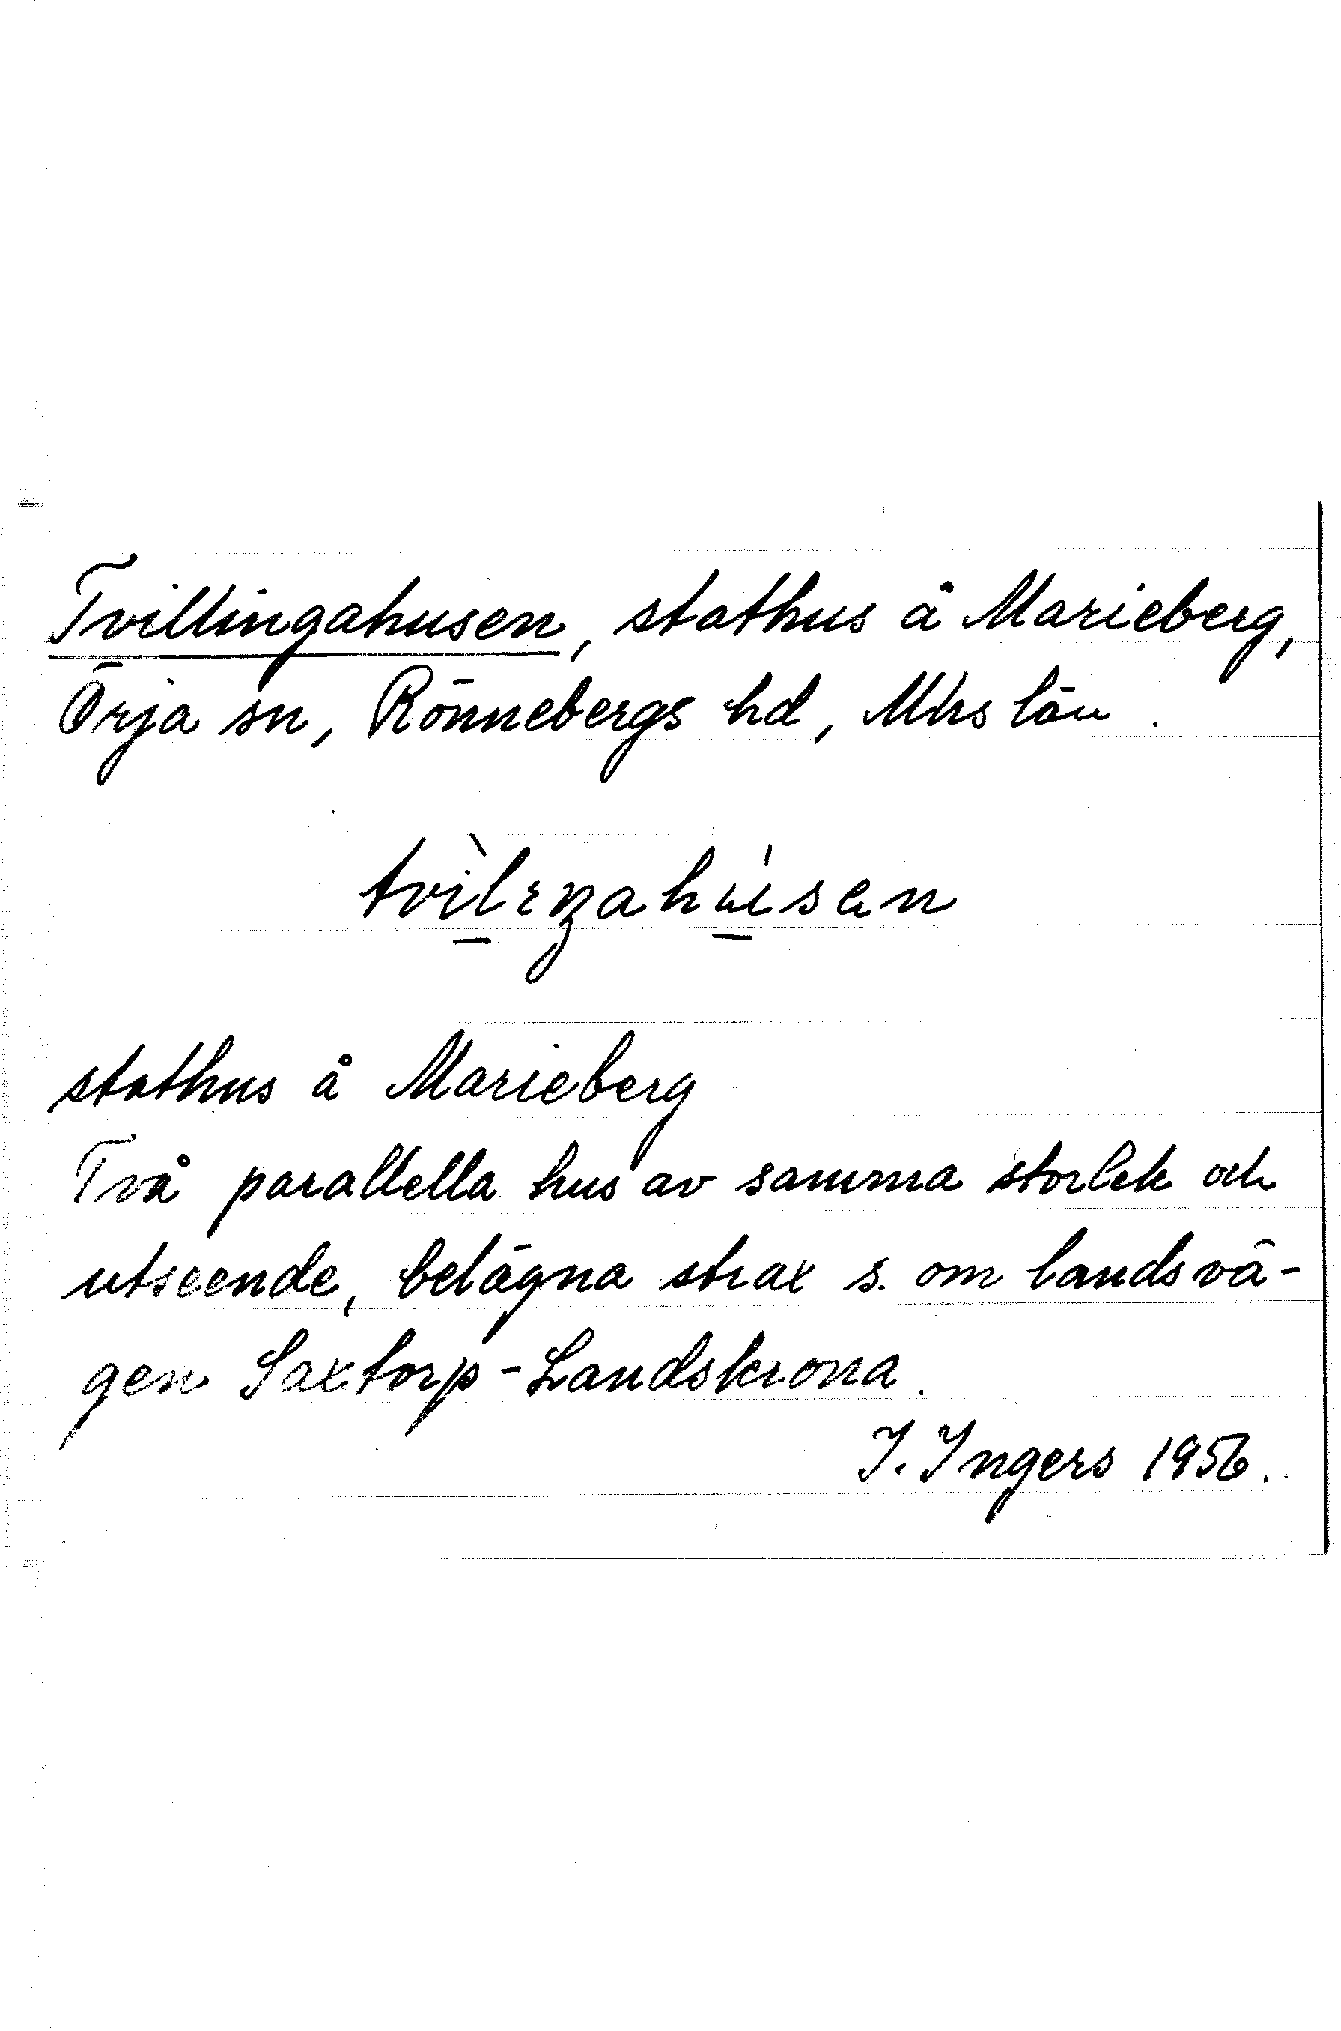 Tvillingahusen, stathus å Marieberg,
Örja sn, Rönnebergs hd, Mhs län.
stathus å Marieberg
Två parallella hus av samma storlek och
utseende, belägna strax s. om landsvä-
gen Saxtorp-Landskrona.
I. Ingers 1956.